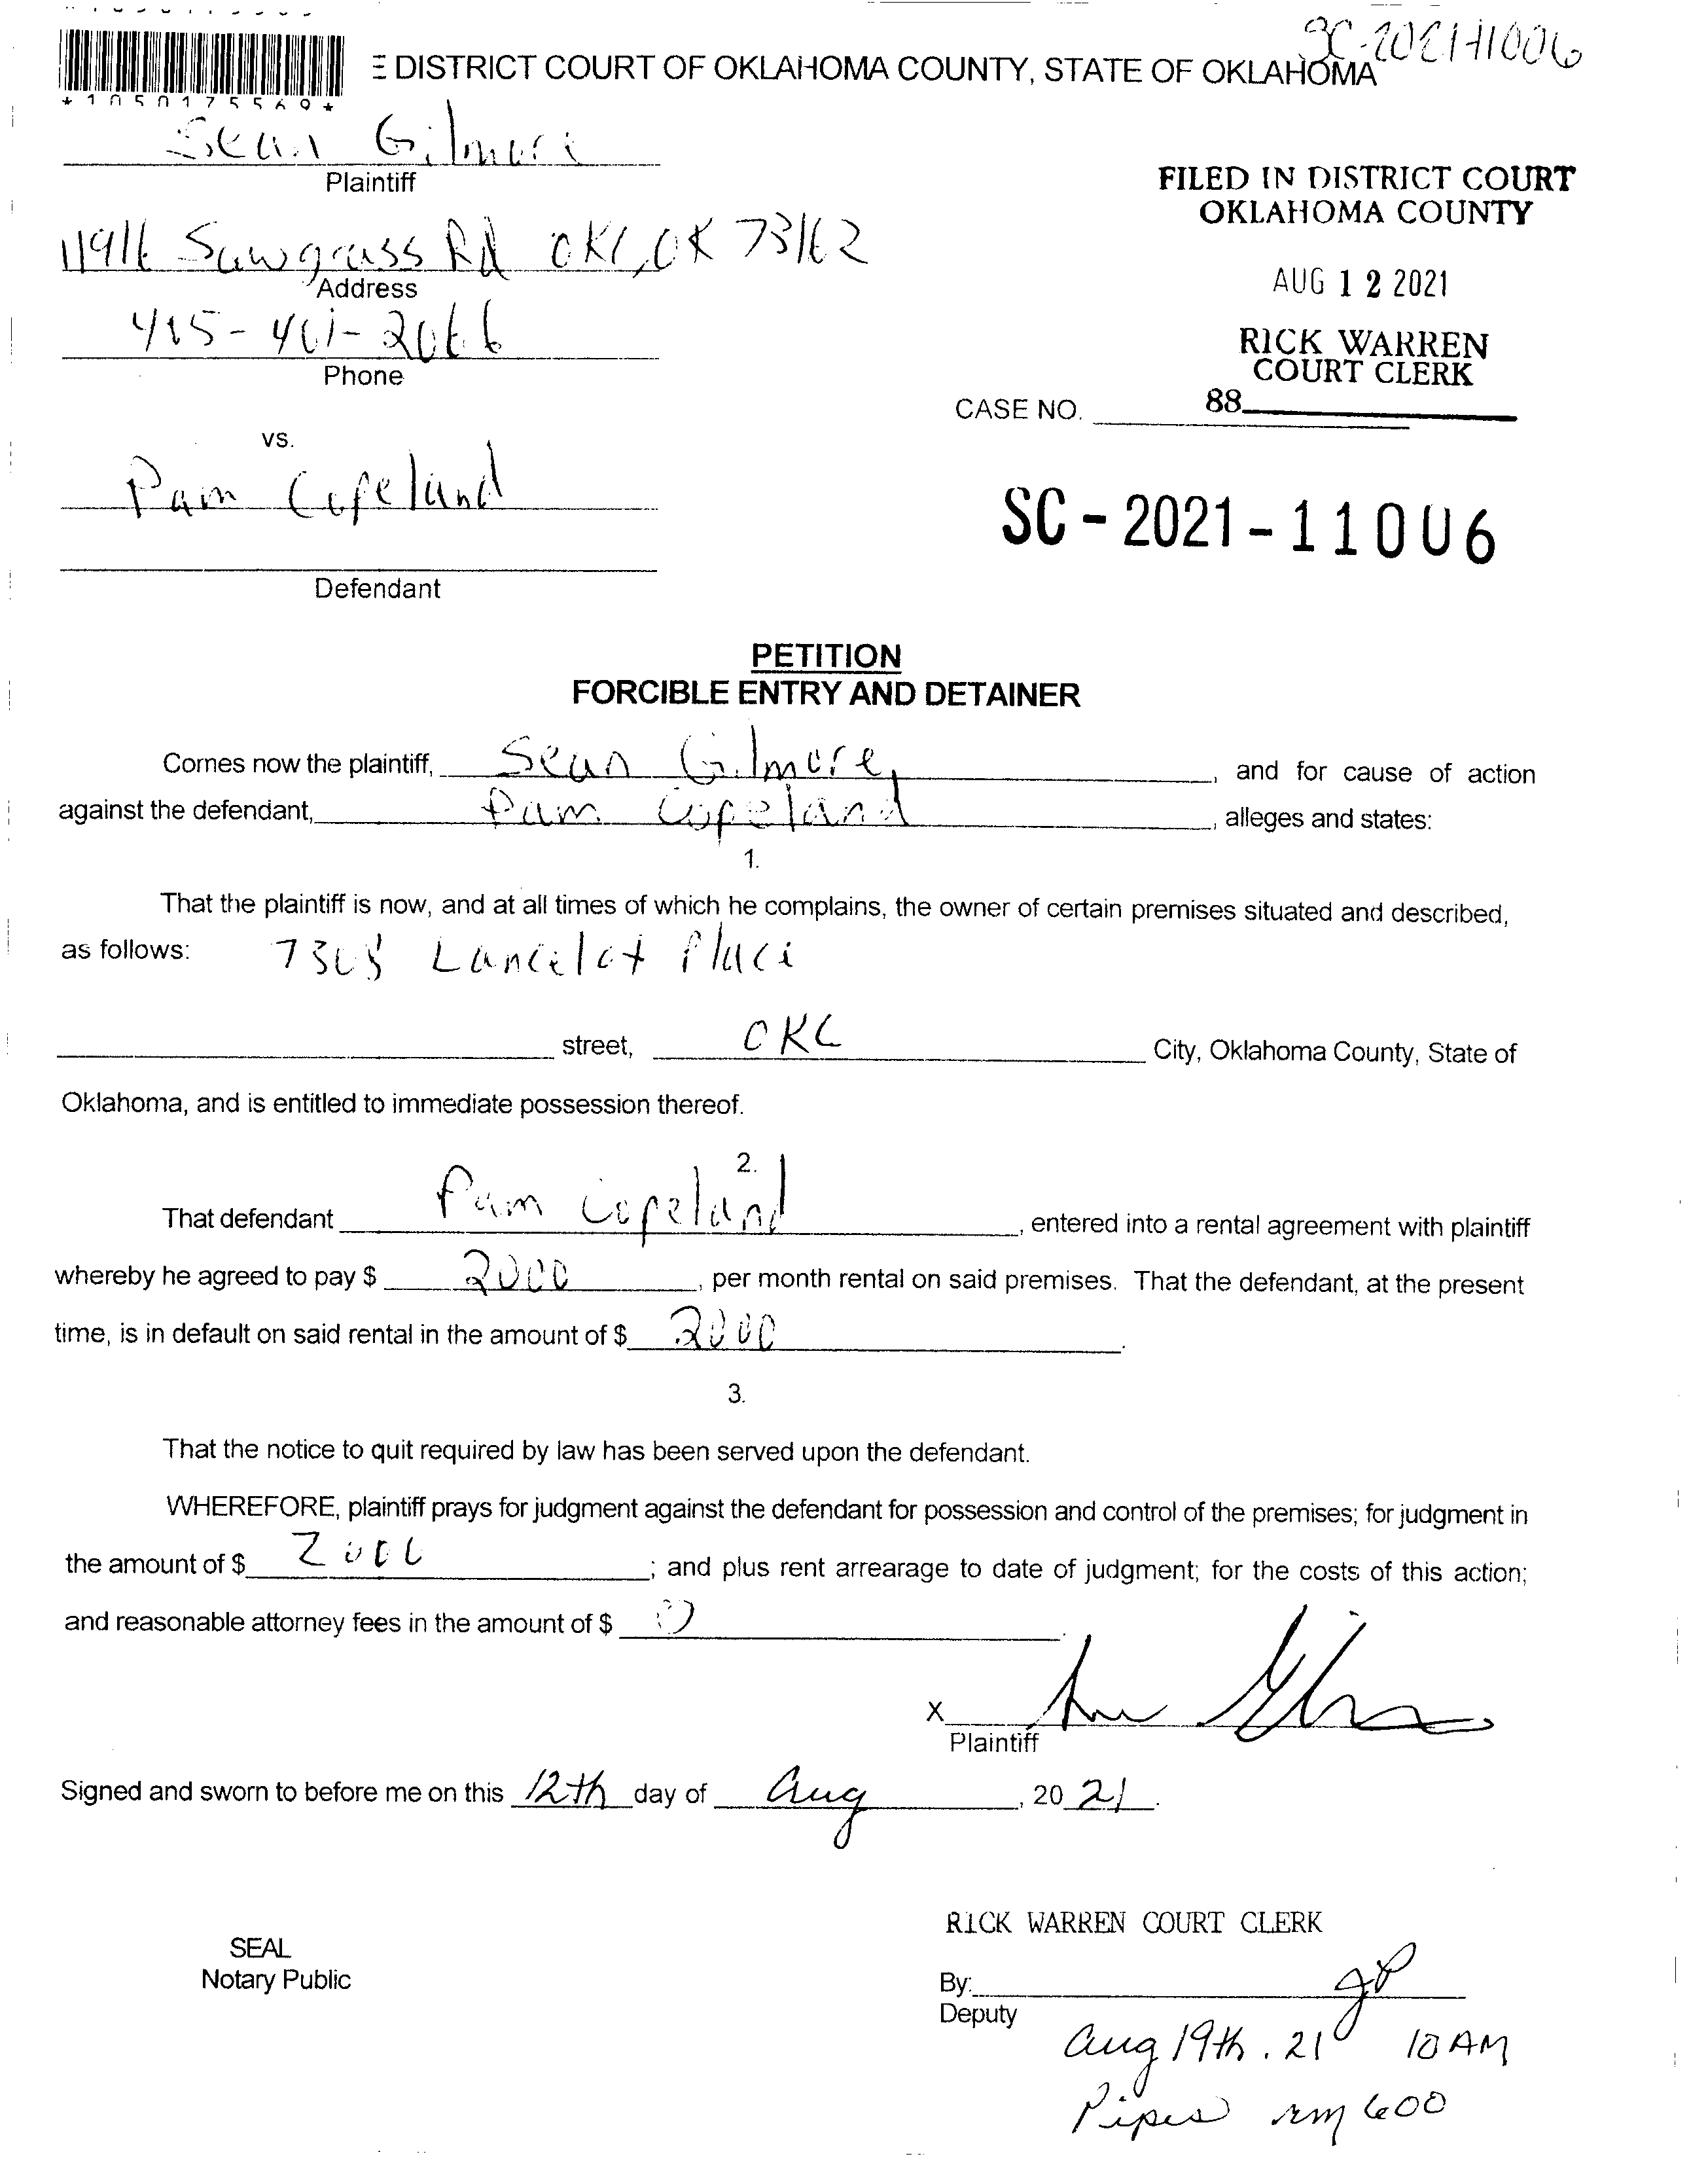 SC-2021-11006
E DISTRICT COURT OF OKLAHOMA COUNTY, STATE OF OKLAHOMA
*1050175569*
Sean Gilmore
Plaintiff
FILED IN DISTRICT COURT
OKLAHOMA COUNTY
11916 Sawgrass Rd OKC, OK 73162
Address
AUG 12 2021
405-401-2066
Phone
RICK WARREN
COURT CLERK
CASE NO.
88
vs.
Pam Copeland
SC-2021-11006
Defendant
PETITION
FORCIBLE ENTRY AND DETAINER
Comes now the plaintiff, Sean Gilmore, and for cause of action
against the defendant, Pam Copeland, alleges and states:
1.
That the plaintiff is now, and at all times of which he complains, the owner of certain premises situated and described,
as follows: 7308 Lancelot Place
street, OKC City, Oklahoma County, State of
Oklahoma, and is entitled to immediate possession thereof.
2.
That defendant Pam Copeland, entered into a rental agreement with plaintiff
whereby he agreed to pay $ 2000, per month rental on said premises. That the defendant, at the present
time, is in default on said rental in the amount of $ 2000.
3.
That the notice to quit required by law has been served upon the defendant.
WHEREFORE, plaintiff prays for judgment against the defendant for possession and control of the premises; for judgment in
the amount of $ 2000; and plus rent arrearage to date of judgment; for the costs of this action;
and reasonable attorney fees in the amount of $ 0.
X
Plaintiff
Signed and sworn to before me on this 12th day of Aug, 20 21.
RICK WARREN COURT CLERK
SEAL
Notary Public
By: JP
Deputy
Aug 19th. 21 10 AM
Pipes rm 600